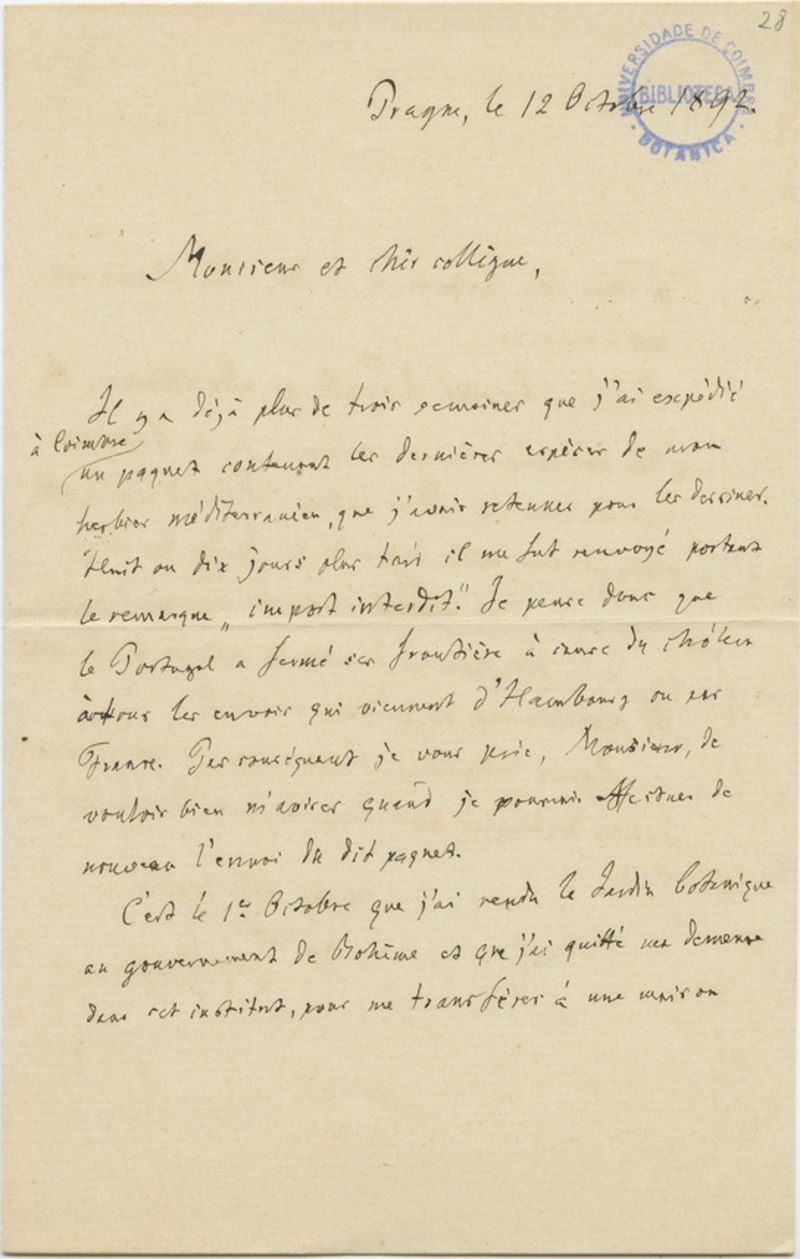 28
UNIVERSIDADE DE COIMBRA
BIBLIOTECA
BOTANICA
Prague, le 12 Octobre 1892.
Monsieur et chèr collègue,
Il y a déjà plus de trois semaines que j'ai expédié
à Coimbre
un paquet contenant les dernières espèces de mon
herbier méditerranéen, que j'avais retenues pour les dessiner.
Huit ou dix jours plus tard il me fut renvoyé portant
le remarque „import interdit." Je pense donc que
le Portugal a fermé ses frontière à cause du choléra
à tous les envois qui viennent d'Hambourg ou par
France. Par conséquent je vous prie, Monsieur, de
vouloir bien m'aviser quand je pourrais effectuer de
nouveau l'envoi du dit paquet.
C'est le 1er Octobre que j'ai rendu le Jardin botanique
au gouvernement de Bohême et que j'ai quitté ma demeure
dans cet institut, pour me transférer à une maison